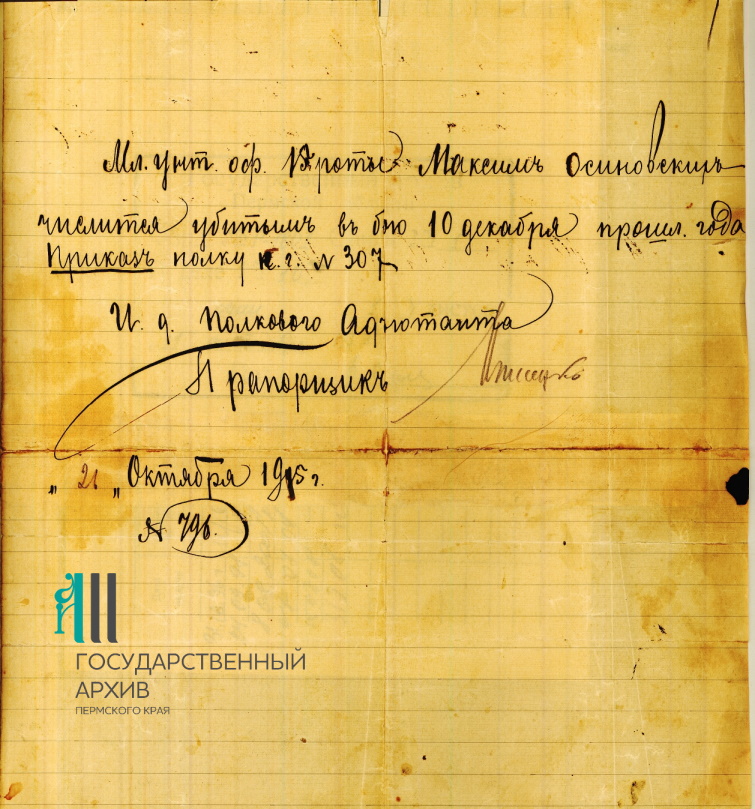 Мл. унт. оф. роты Максимъ Осиновскихъ
числится убитымъ въ бою 10 декабря прошл. года
Приказъ полку с. г. № 307
И. д. Полкового Адъютанта
Прапорщикъ
„ 21 „ Октября 1915 г.
№ 796.
ГОСУДАРСТВЕННЫЙ
АРХИВ
ПЕРМСКОГО КРАЯ